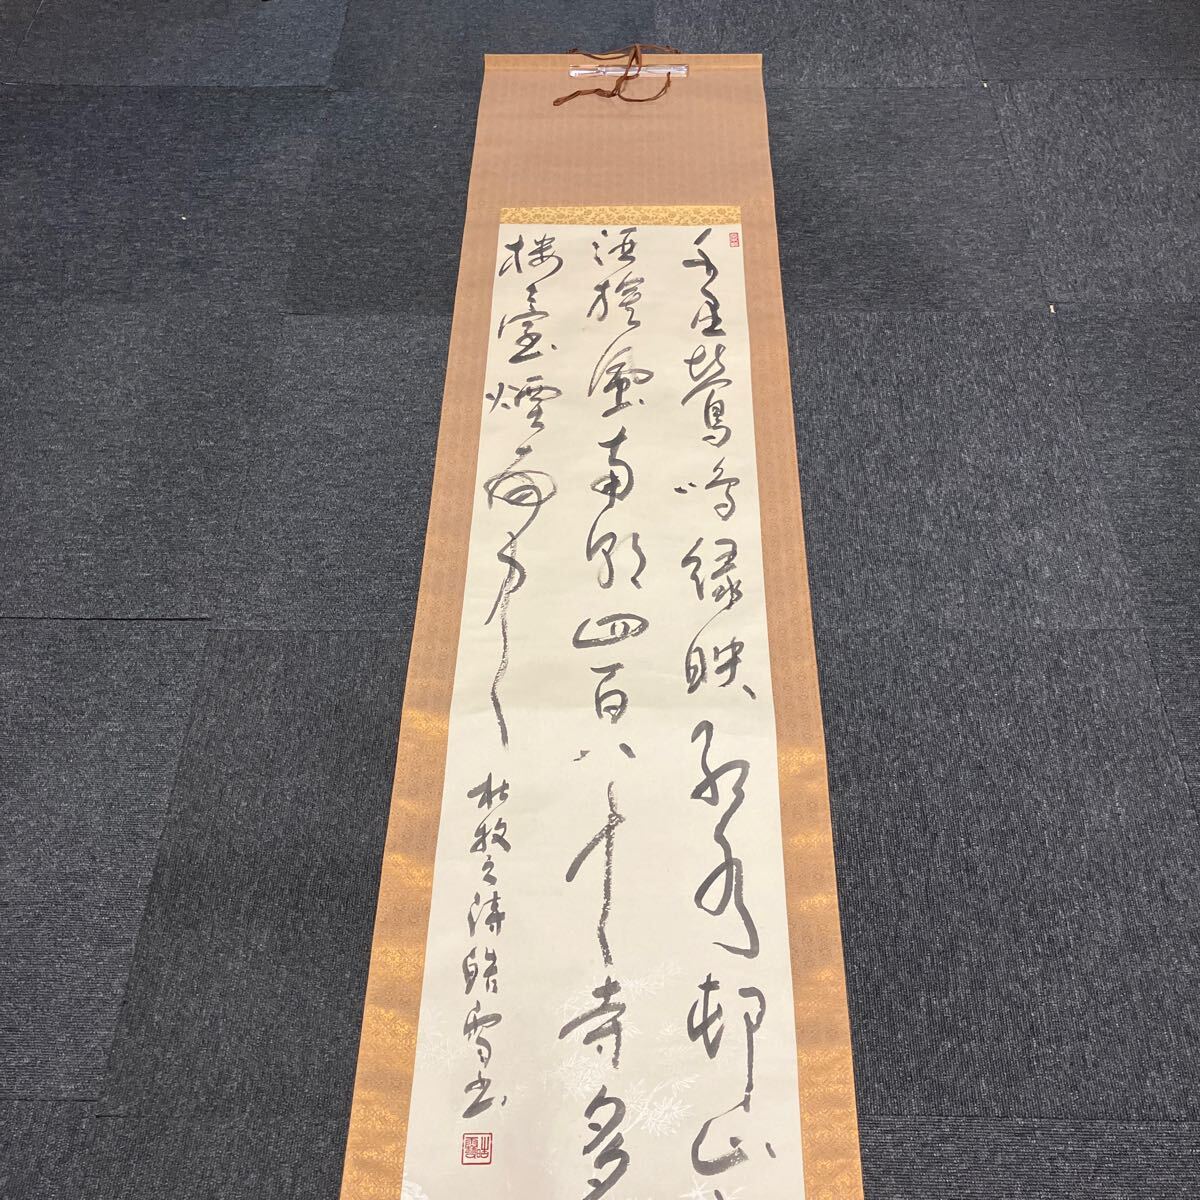 千里鶯鳴緑映紅水邨山
酒旗風南朝四百八十寺多
樓臺煙雨中
杜牧之詩皓雪書